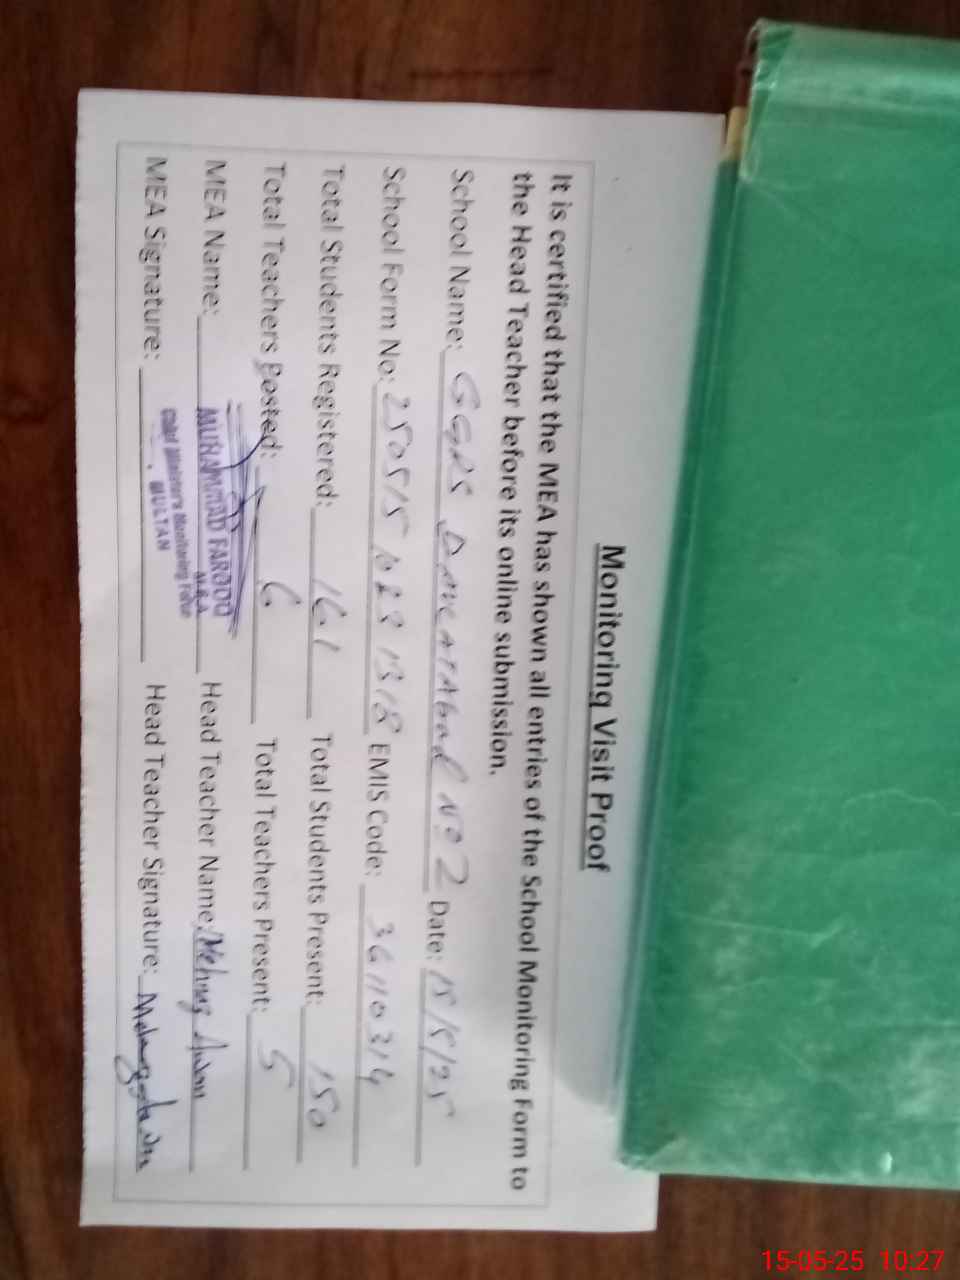 Monitoring Visit Proof
It is certified that the MEA has shown all entries of the School Monitoring Form to
the Head Teacher before its online submission.
School Name: GGPS No 2 Date: 15/5/25
School Form No: EMIS Code: 36110314
Total Students Registered: 161 Total Students Present: 150
Total Teachers Posted: 6 Total Teachers Present: 5
MEA Name: MUHAMMAD FAROOQ Head Teacher Name: Mehnaz Awan
M.E.A
Chief Minister's Monitoring Force
MULTAN
MEA Signature: Head Teacher Signature:
15-05-25 10:27